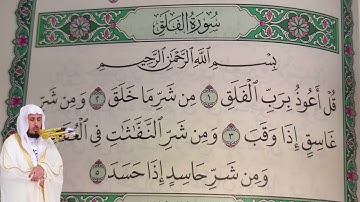 سُورَةُ الْفَلَقِ
بِسْمِ اللَّهِ الرَّحْمَٰنِ الرَّحِيمِ
قُلْ أَعُوذُ بِرَبِّ الْفَلَقِ ١ مِن شَرِّ مَا خَلَقَ ٢ وَمِن شَرِّ
غَاسِقٍ إِذَا وَقَبَ ٣ وَمِن شَرِّ النَّفَّاثَاتِ فِي
وَمِن شَرِّ حَاسِدٍ إِذَا حَسَدَ ٥